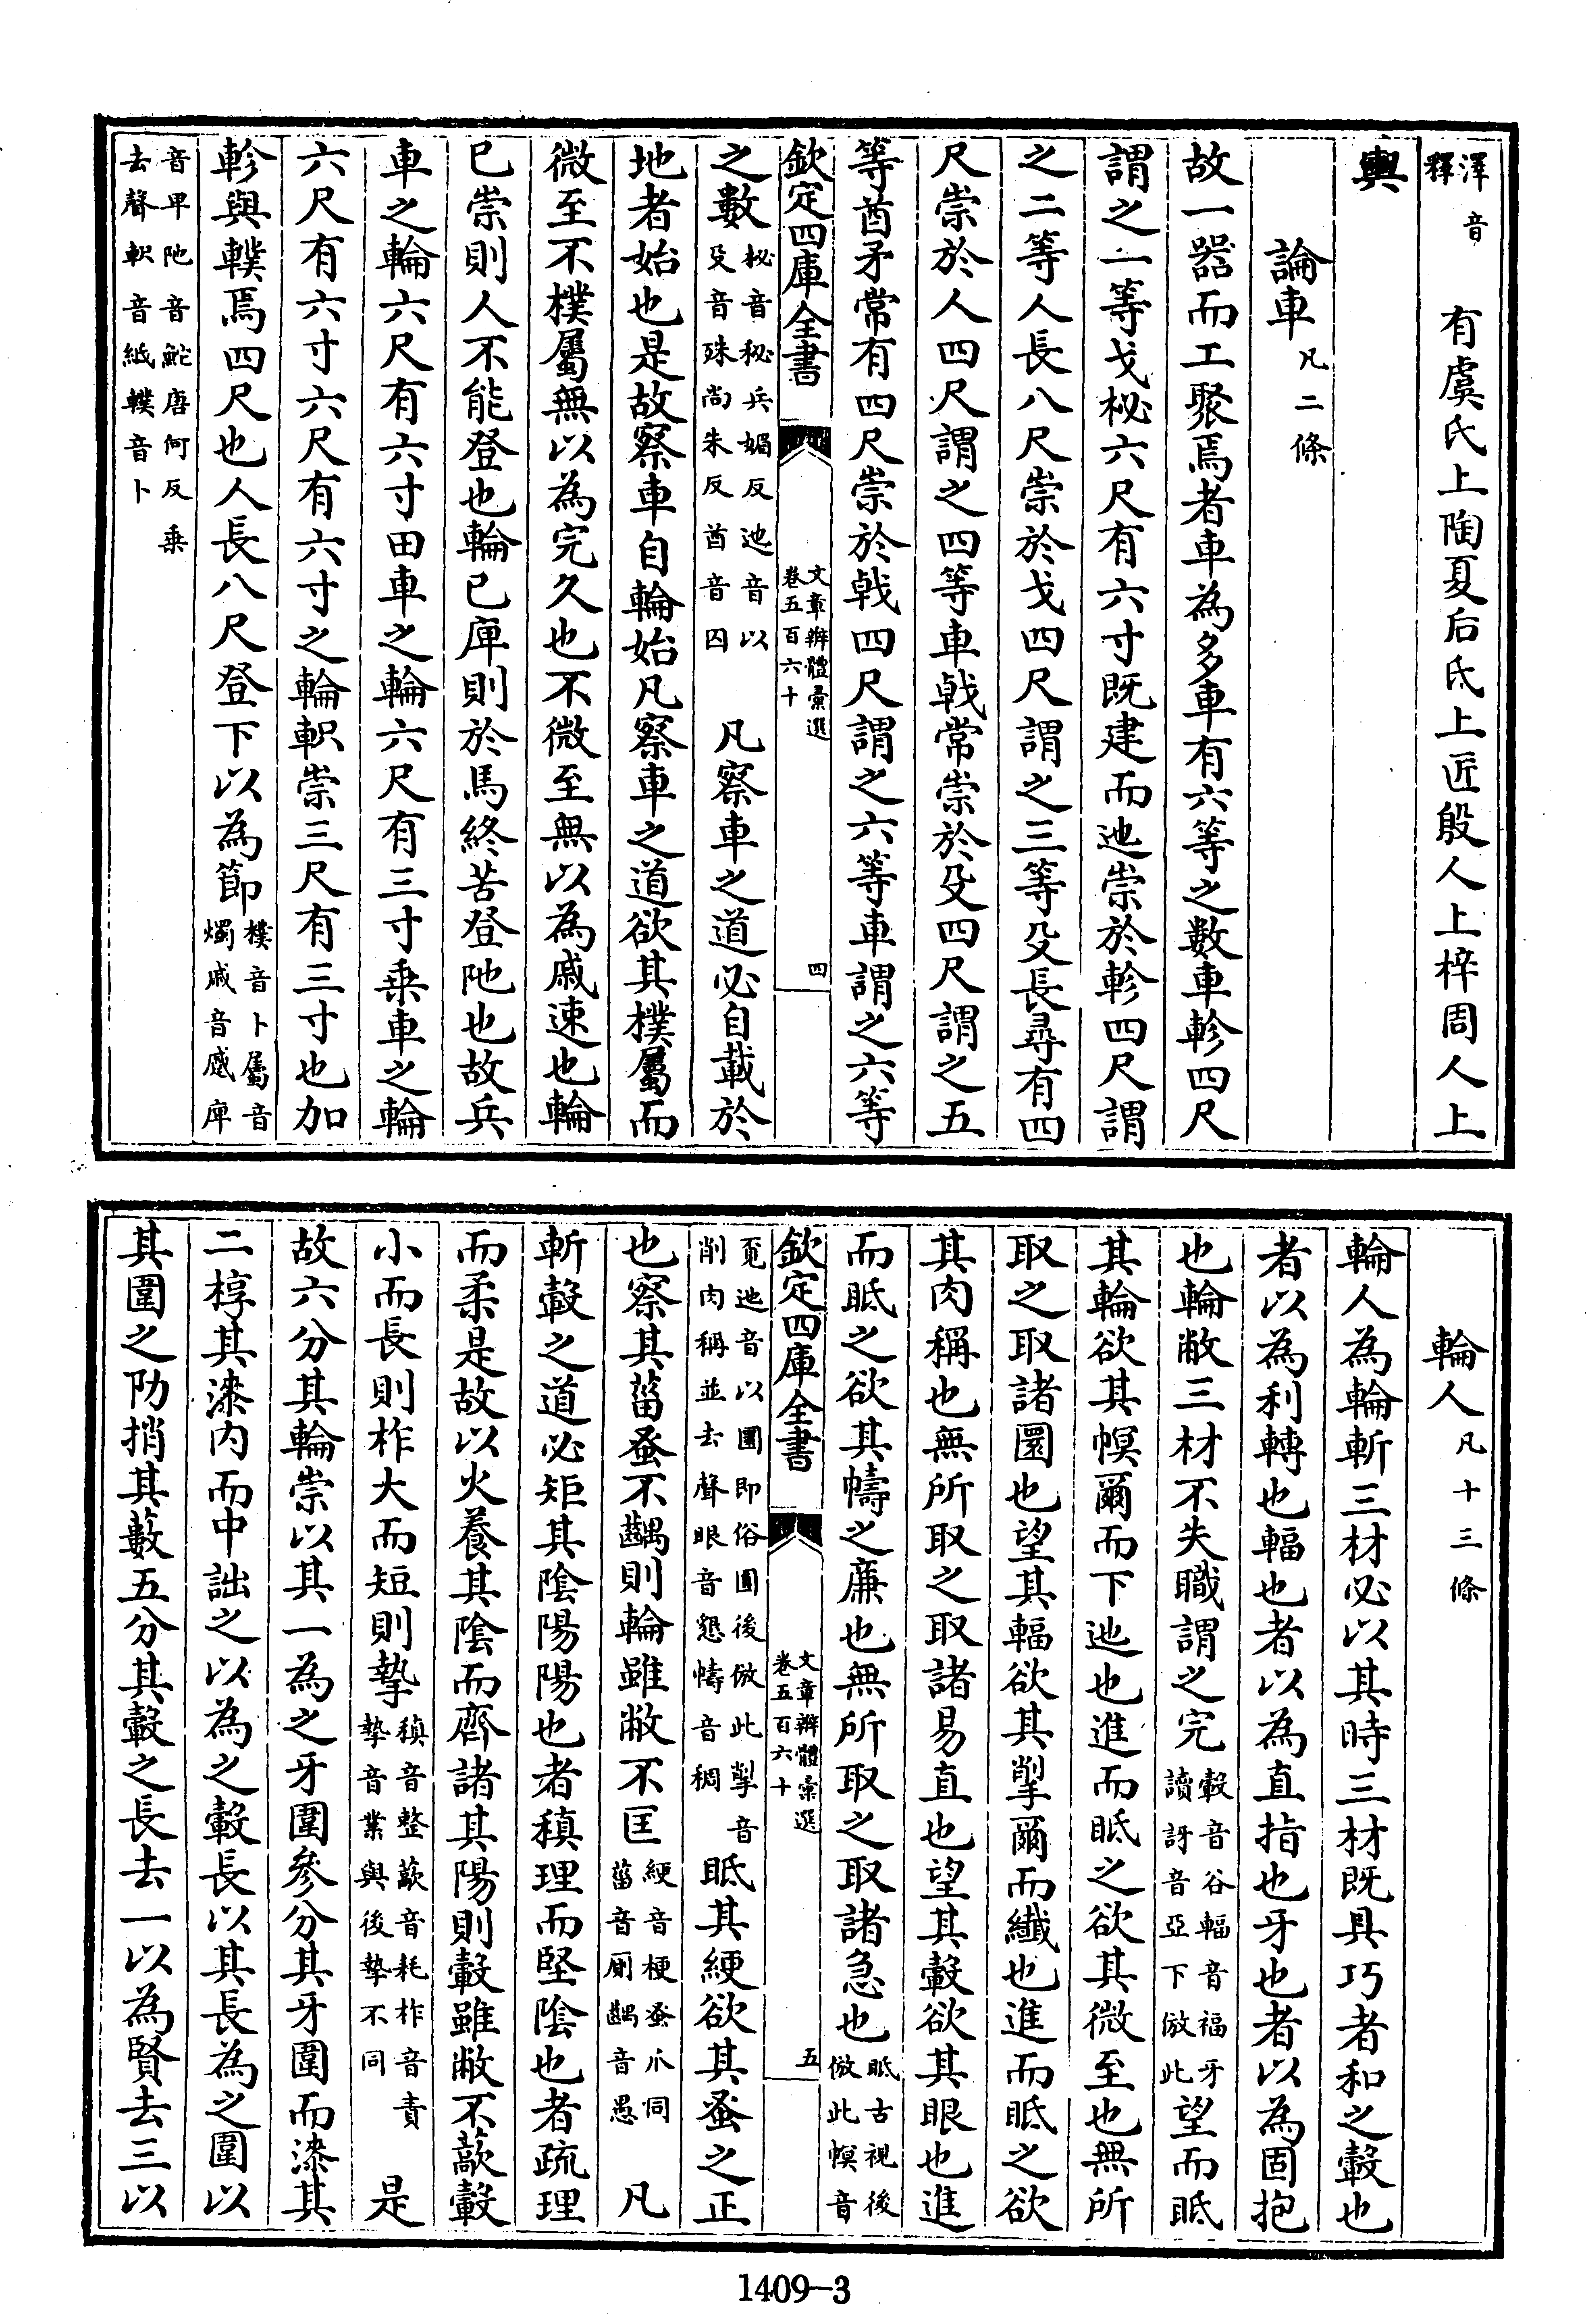 澤音釋　有虞氏上陶夏后氏上匠殷人上梓周人上
輿
論車凡二條
故一器而工聚焉者車為多車有六等之數車軫四尺
謂之一等戈柲六尺有六寸既建而迆崇於軫四尺謂
之二等人長八尺崇於戈四尺謂之三等殳長尋有四
尺崇於人四尺謂之四等車戟常崇於殳四尺謂之五
等酋矛常有四尺崇於戟四尺謂之六等車謂之六等
欽定四庫全書　文章辨體彙選卷五百六十　四
之數柲音秘兵媚反迆音以殳音殊尚朱反酋音囚　凡察車之道必自載於
地者始也是故察車自輪始凡察車之道欲其樸屬而
微至不樸屬無以為完久也不微至無以為戚速也輪
已崇則人不能登也輪已庳則於馬終苦登阤也故兵
車之輪六尺有六寸田車之輪六尺有三寸乗車之輪
六尺有六寸六尺有六寸之輪軹崇三尺有三寸也加
軫與轐焉四尺也人長八尺登下以為節樸音卜屬音燭戚音慼庳
音甲阤音鮀唐何反乗去聲軹音紙轐音卜
輪人凡十三條
輪人為輪斬三材必以其時三材既具巧者和之轂也
者以為利轉也輻也者以為直指也牙也者以為固抱
也輪敝三材不失職謂之完轂音谷輻音福牙讀訝音亞下倣此望而眡
其輪欲其幎爾而下迆也進而眡之欲其微至也無所
取之取諸圜也望其輻欲其揱爾而纎也進而眡之欲
其肉稱也無所取之取諸易直也望其轂欲其眼也進
而眡之欲其幬之廉也無所取之取諸急也眡古視後倣此幎音
欽定四庫全書　文章辨體彙選卷五百六十　五
覓迆音以圜即俗圓後倣此揱音削肉稱並去聲眼音懇幬音稠　眡其綆欲其蚤之正
也察其菑蚤不齵則輪雖敝不匡綆音梗蚤爪同菑音厠齵音愚　凡
斬轂之道必矩其陰陽陽也者稹理而堅陰也者疏理
而柔是故以火養其陰而齊諸其陽則轂雖敝不藃轂
小而長則柞大而短則摯稹音整藃音耗柞音責摯音業與後摯不同　是
故六分其輪崇以其一為之牙圍參分其牙圍而漆其
二椁其漆内而中詘之以為之轂長以其長為之圍以
其圍之阞捎其藪五分其轂之長去一以為賢去三以
1409-3